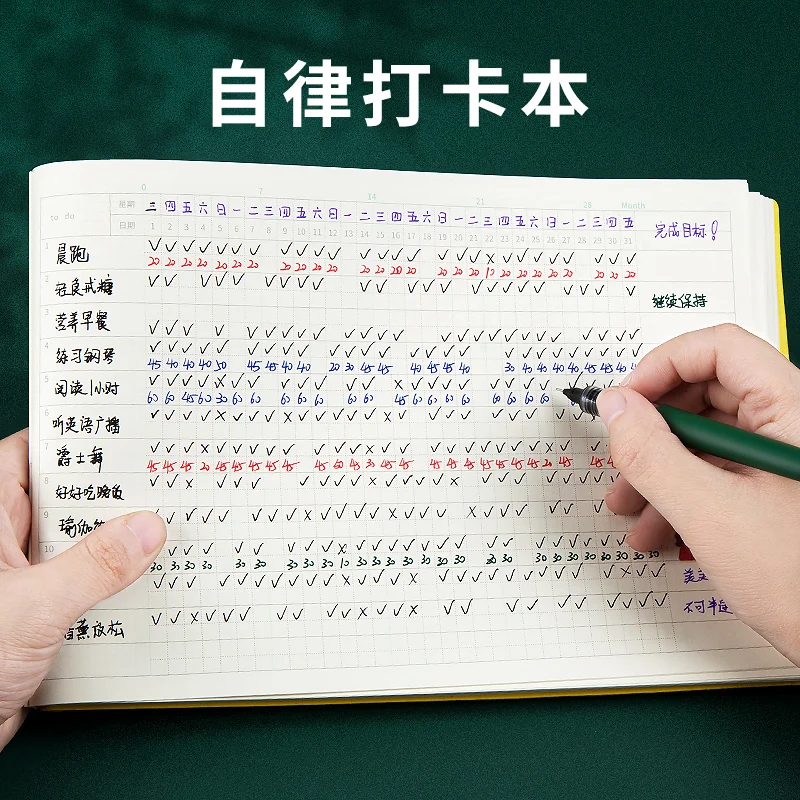 自律打卡本
0 7 14 21 28 Month
to do 星期 三 四 五 六 日 一 二 三 四 五 六 日 一 二 三 四 五 六 日 一 二 三 四 五 六 日 一 二 三 四 五 完成目标!
日期 1 2 3 4 5 6 7 8 9 10 11 12 13 14 15 16 17 18 19 20 21 22 23 24 25 26 27 28 29 30 31
1 晨跑
20 20 20 20 20 20 20 20 20 20 20 20 20 20 20 20 20 20 10 20 20 20 20 20 20 20 20
2 轻食戒糖 继续保持
3 营养早餐
4 练习钢琴
45 40 40 40 50 45 45 40 40 20 30 45 45 40 45 45 40 30 40 40 40 40 45 45
5 阅读1小时
60 60 45 60 30 60 60 60 60 60 60 60 45 60 60 60 60 60 60 60 60
6 听英语广播
7 爵士舞
45 45 45 20 45 45 45 45 45 45 60 45 30 45 45 45 45 45 45 45 45 45 20 45
8 好好吃晚饭
9 瑜伽
10
30 30 30 30 30 30 30 30 30 10 30 30 30 30 30 30 30 30 30 30 30 30 30 30 30
放松